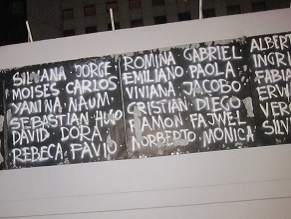 SILVANA JORGE
MOISES CARLOS
YANINA NAUM
SEBASTIAN HUGO
DAVID DORA
REBECA FAVIO
ROMINA GABRIEL
EMILIANO PAOLA
VIVIANA JACOBO
CRISTIAN DIEGO
RAMON FAJWEL
NORBERTO MONICA
ALBERT
INGRI
FABIA
ERW
VERO
SILV